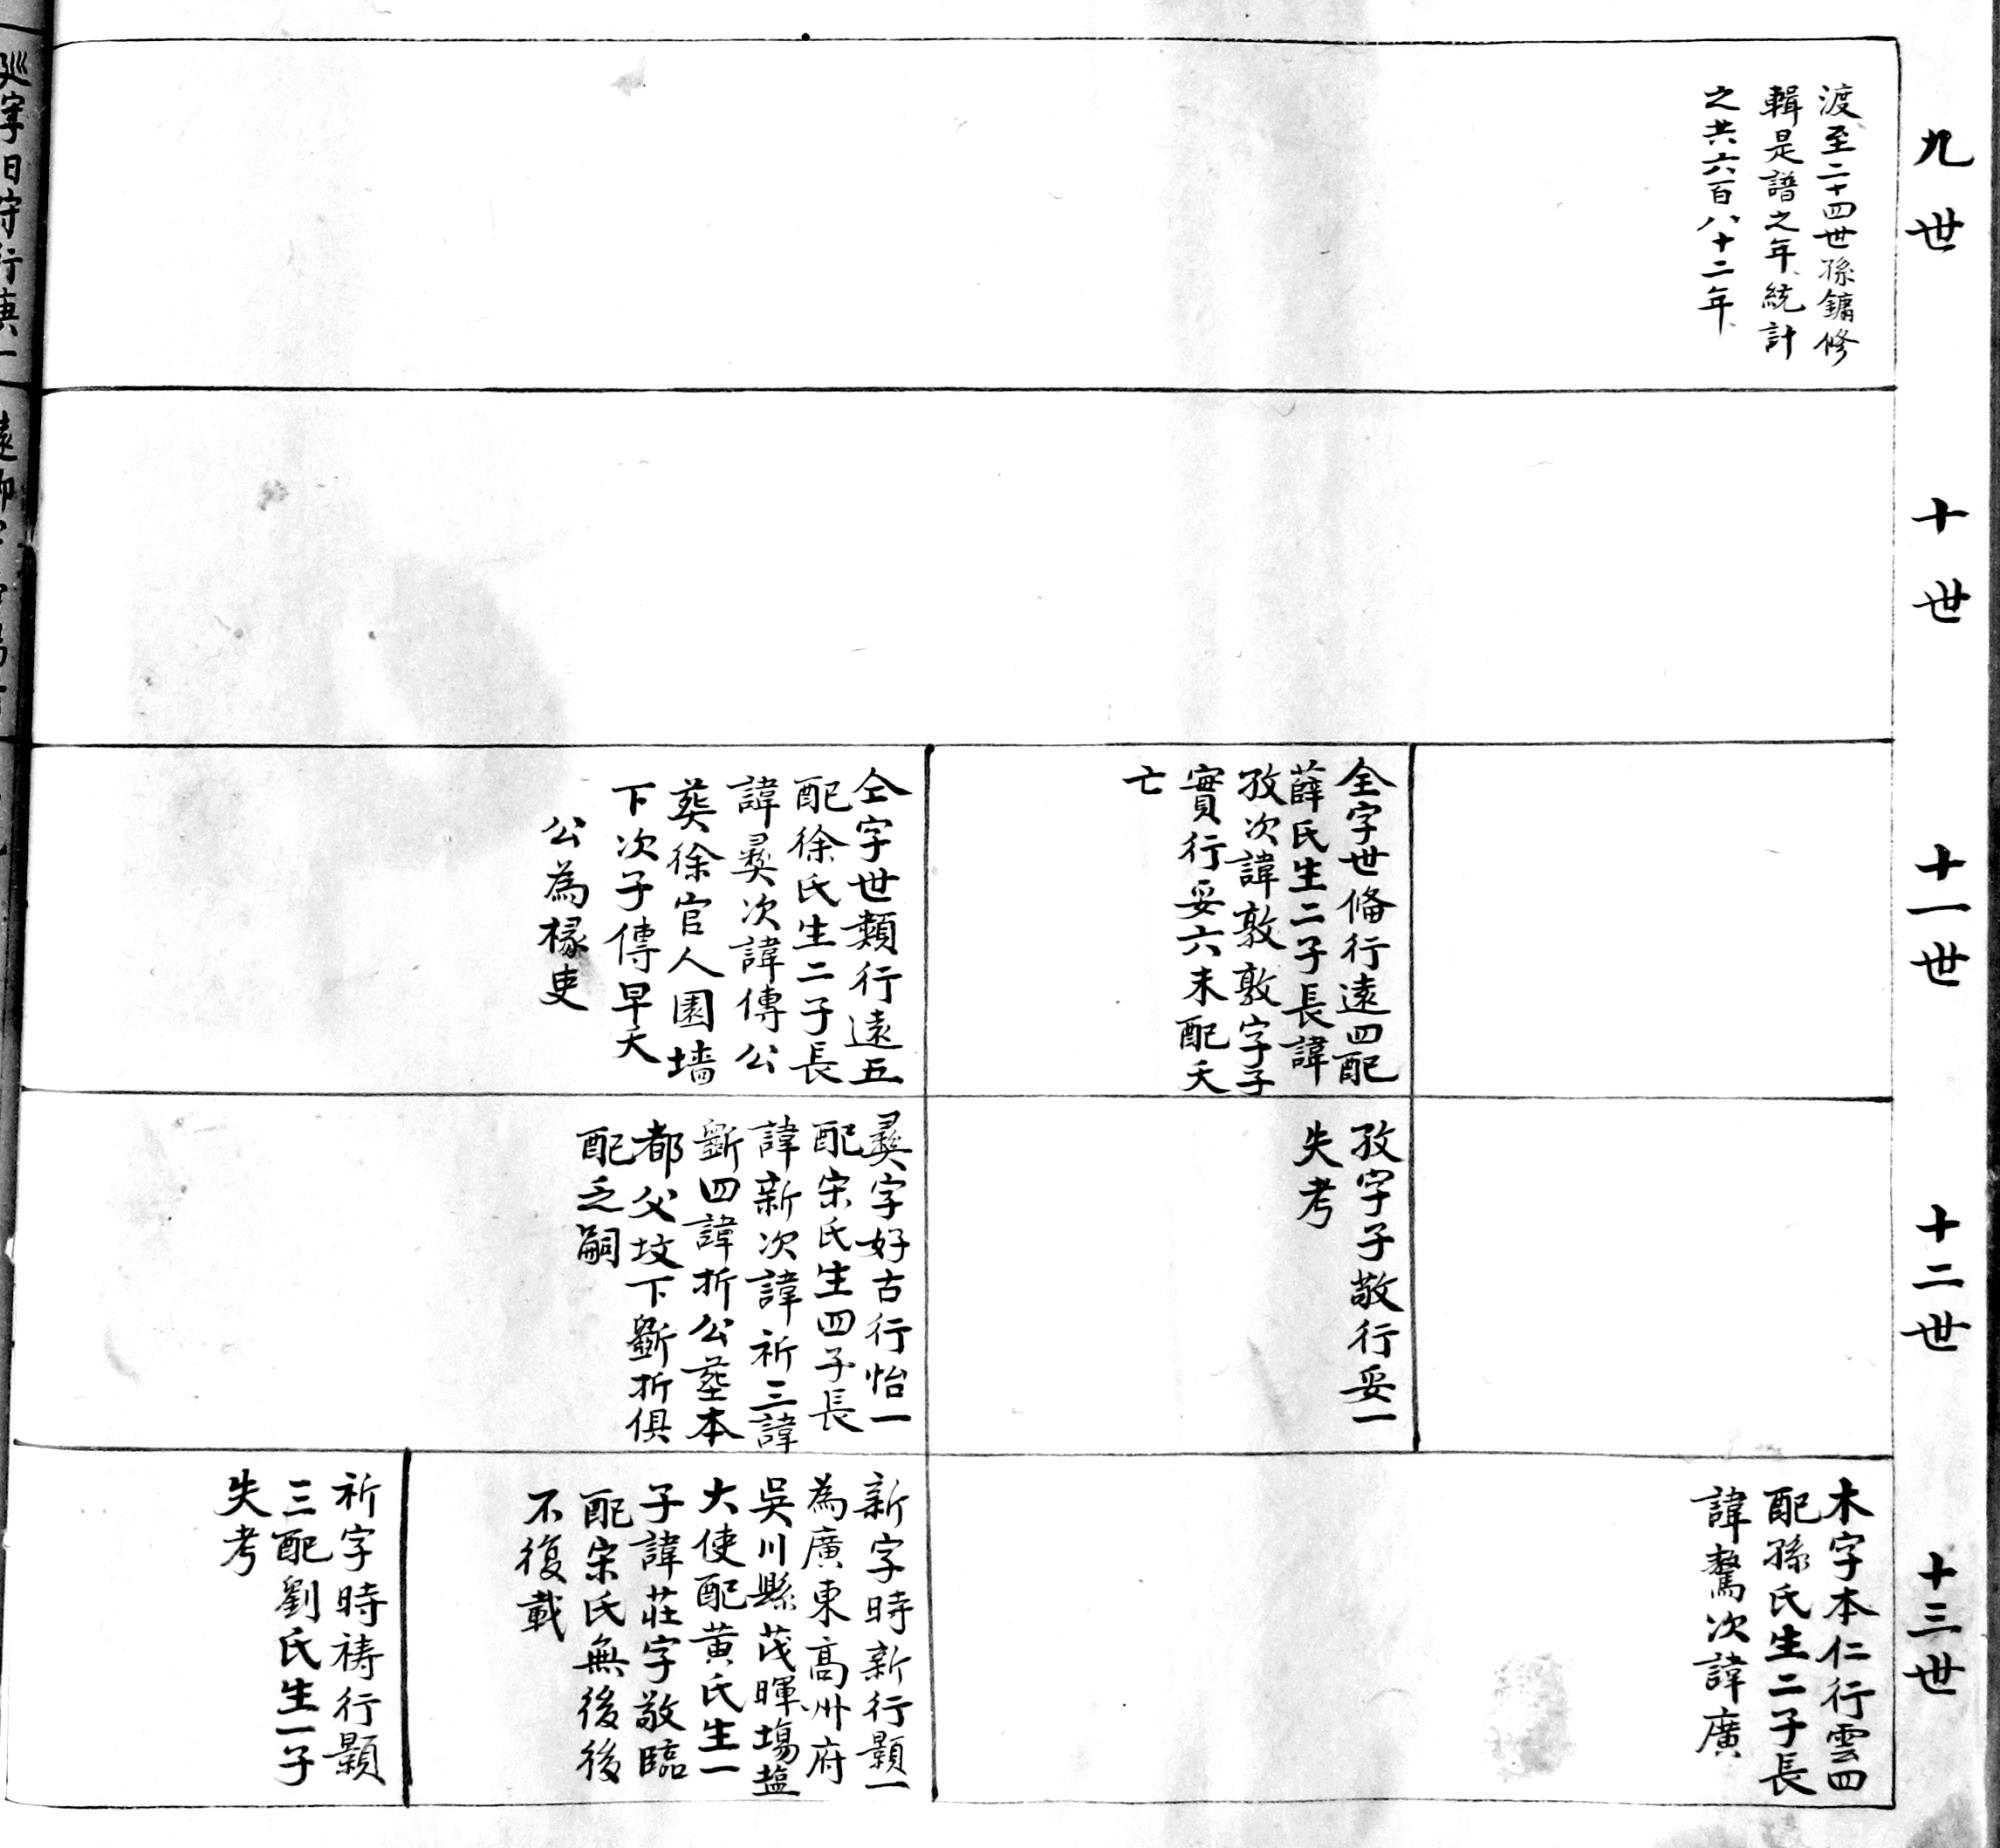 九世
渡至二十四世孫鏞修
輯是譜之年統計
之共六百八十二年
十世
十一世
全字世俻行遠四配
薛氏生二子長諱
孜次諱敦敦字子
實行妥六未配夭
亡
仝字世類行遠五
配徐氏生二子長
諱彛次諱傳公
葬徐官人園墻
下次子傳早夭
公為椽吏
十二世
孜字子敬行妥一
失考
彛字好古行怡一
配宋氏生四子長
諱新次諱祈三諱
斷四諱折公塟本
都父坟下斷折俱
配乏嗣
十三世
木字本仁行雲四
配孫氏生二子長
諱驁次諱廣
新字時新行顥一
為廣東高州府
吳川縣茂暉塲塩
大使配黃氏生一
子諱莊字敬臨
配宋氏無後後
不復載
祈字時祷行顥
三配劉氏生一子
失考